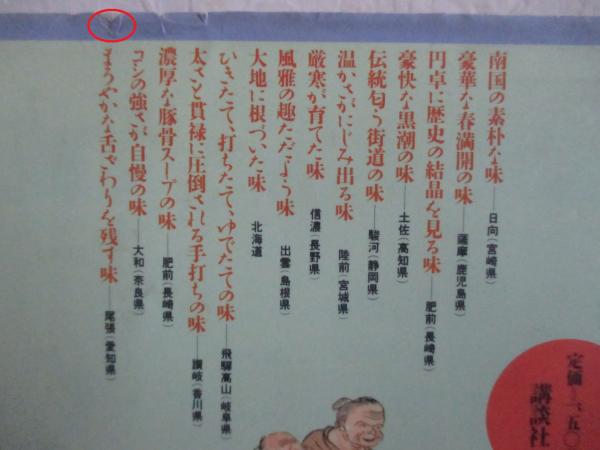 南国の素朴な味——日向(宮崎県)
豪華な春満開の味——薩摩(鹿児島県)
円卓に歴史の結晶を見る味——肥前(長崎県)
豪快な黒潮の味——土佐(高知県)
伝統匂う街道の味——駿河(静岡県)
温かさがにじみ出る味 陸前(宮城県)
厳寒が育てた味 信濃(長野県)
風雅の趣ただよう味 出雲(島根県)
大地に根づいた味 北海道
いきたて、打ちたて、ゆでたての味——飛驒高山(岐阜県)
太さと貫禄に圧倒される手打ちの味——讃岐(香川県)
濃厚な豚骨スープの味——肥前(長崎県)
コシの強さが自慢の味——大和(奈良県)
まろやかな舌ざわりを残す味——尾張(愛知県)
定価一、五〇
講談社